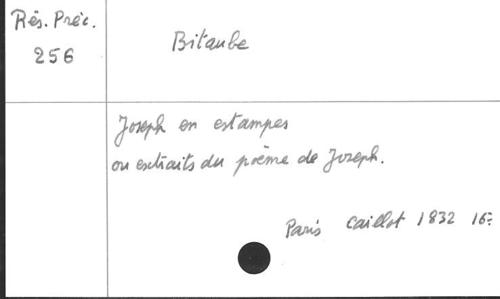 Rés. Préc.
256
Bitaube
Joseph en estampes
ou extraits du poème de Joseph.
Paris Caillot 1832 16º